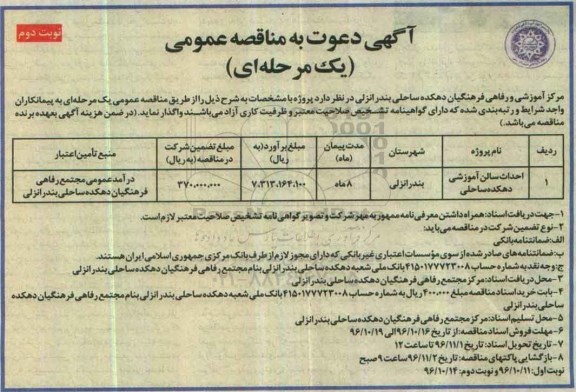 نوبت دوم
آگهی دعوت به مناقصه عمومی
(یک مرحله‌ای)
مرکز آموزشی و رفاهی فرهنگیان دهکده ساحلی بندر انزلی در نظر دارد پروژه با مشخصات به شرح ذیل را از طریق مناقصه عمومی یک مرحله‌ای به پیمانکاران
واجد شرایط و رتبه‌بندی شده که دارای گواهینامه تشخیص صلاحیت معتبر و ظرفیت کاری آزاد می‌باشند واگذار نماید. (در ضمن هزینه آگهی بعهده برنده
مناقصه می‌باشد.)
ردیف | نام پروژه | شهرستان | مدت پیمان (ماه) | مبلغ برآورد (به ریال) | مبلغ تضمین شرکت در مناقصه (به ریال) | منبع تأمین اعتبار
۱ | احداث سالن آموزشی دهکده ساحلی | بندرانزلی | ۸ ماه | ۷.۳۱۳.۱۶۴.۱۰۰ | ۳۷۰.۰۰۰.۰۰۰ | درآمد عمومی مجتمع رفاهی فرهنگیان دهکده ساحلی بندرانزلی
۱-جهت دریافت اسناد: همراه داشتن معرفی نامه ممهور به مهر شرکت و تصویر گواهی نامه تشخیص صلاحیت معتبر لازم است.
۲-نوع تضمین شرکت در مناقصه می‌باید:
الف: ضمانتنامه بانکی
ب: ضمانتنامه‌های صادر شده از سوی مؤسسات اعتباری غیر بانکی که دارای مجوز لازم از طرف بانک مرکزی جمهوری اسلامی ایران هستند.
ج: وجه نقد به شماره حساب ۴۱۵۰۱۷۷۷۲۳۰۰۸ بانک ملی شعبه دهکده ساحلی بندر انزلی بنام مجتمع رفاهی فرهنگیان دهکده ساحلی بندرانزلی
۳-محل دریافت اسناد: مرکز مجتمع رفاهی فرهنگیان دهکده ساحلی بندرانزلی
۴-بابت خرید اسناد مناقصه مبلغ ۴۰۰.۰۰۰ ریال به شماره حساب ۴۱۵۰۱۷۷۷۲۳۰۰۸ بانک ملی شعبه دهکده ساحلی بندر انزلی بنام مجتمع رفاهی فرهنگیان دهکده
ساحلی بندرانزلی
۵-محل تسلیم اسناد: مرکز مجتمع رفاهی فرهنگیان دهکده ساحلی بندرانزلی
۶-مهلت فروش اسناد مناقصه: از تاریخ ۹۶/۱۰/۱۶ الی ۹۶/۱۰/۱۹
۷- تاریخ تحویل اسناد: تاریخ ۹۶/۱۱/۱ تا ساعت ۱۲
۸-بازگشایی پاکتهای مناقصه: تاریخ ۹۶/۱۱/۲ ساعت ۹ صبح
نوبت اول: ۹۶/۱۰/۱۱ و نوبت دوم: ۹۶/۱۰/۱۴